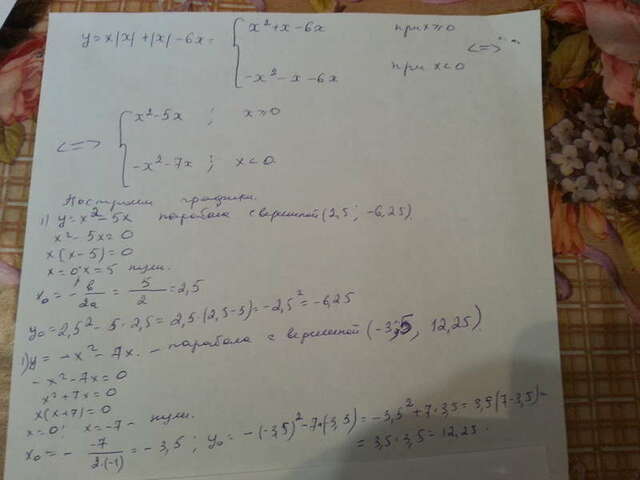 y = x|x| + |x| - 6x = { x² + x - 6x при x ≥ 0
-x² - x - 6x при x < 0 <=>
<=> { x² - 5x ; x ≥ 0
-x² - 7x ; x < 0
Построим графики.
1) y = x² - 5x парабола с вершиной (2,5 ; -6,25)
x² - 5x = 0
x(x - 5) = 0
x = 0; x = 5 нули.
x₀ = - в/2a = 5/2 = 2,5
y₀ = 2,5² - 5·2,5 = 2,5·(2,5-5) = -2,5² = -6,25
1) y = -x² - 7x. - парабола с вершиной (-3,5 , 12,25).
-x² - 7x = 0
x² + 7x = 0
x(x + 7) = 0
x = 0; x = -7 - нули.
x₀ = - -7/2·(-1) = -3,5 ; y₀ = -(-3,5)² - 7·(3,5) = -3,5² + 7·3,5 = 3,5(7-3,5) -
= 3,5·3,5 = 12,25.